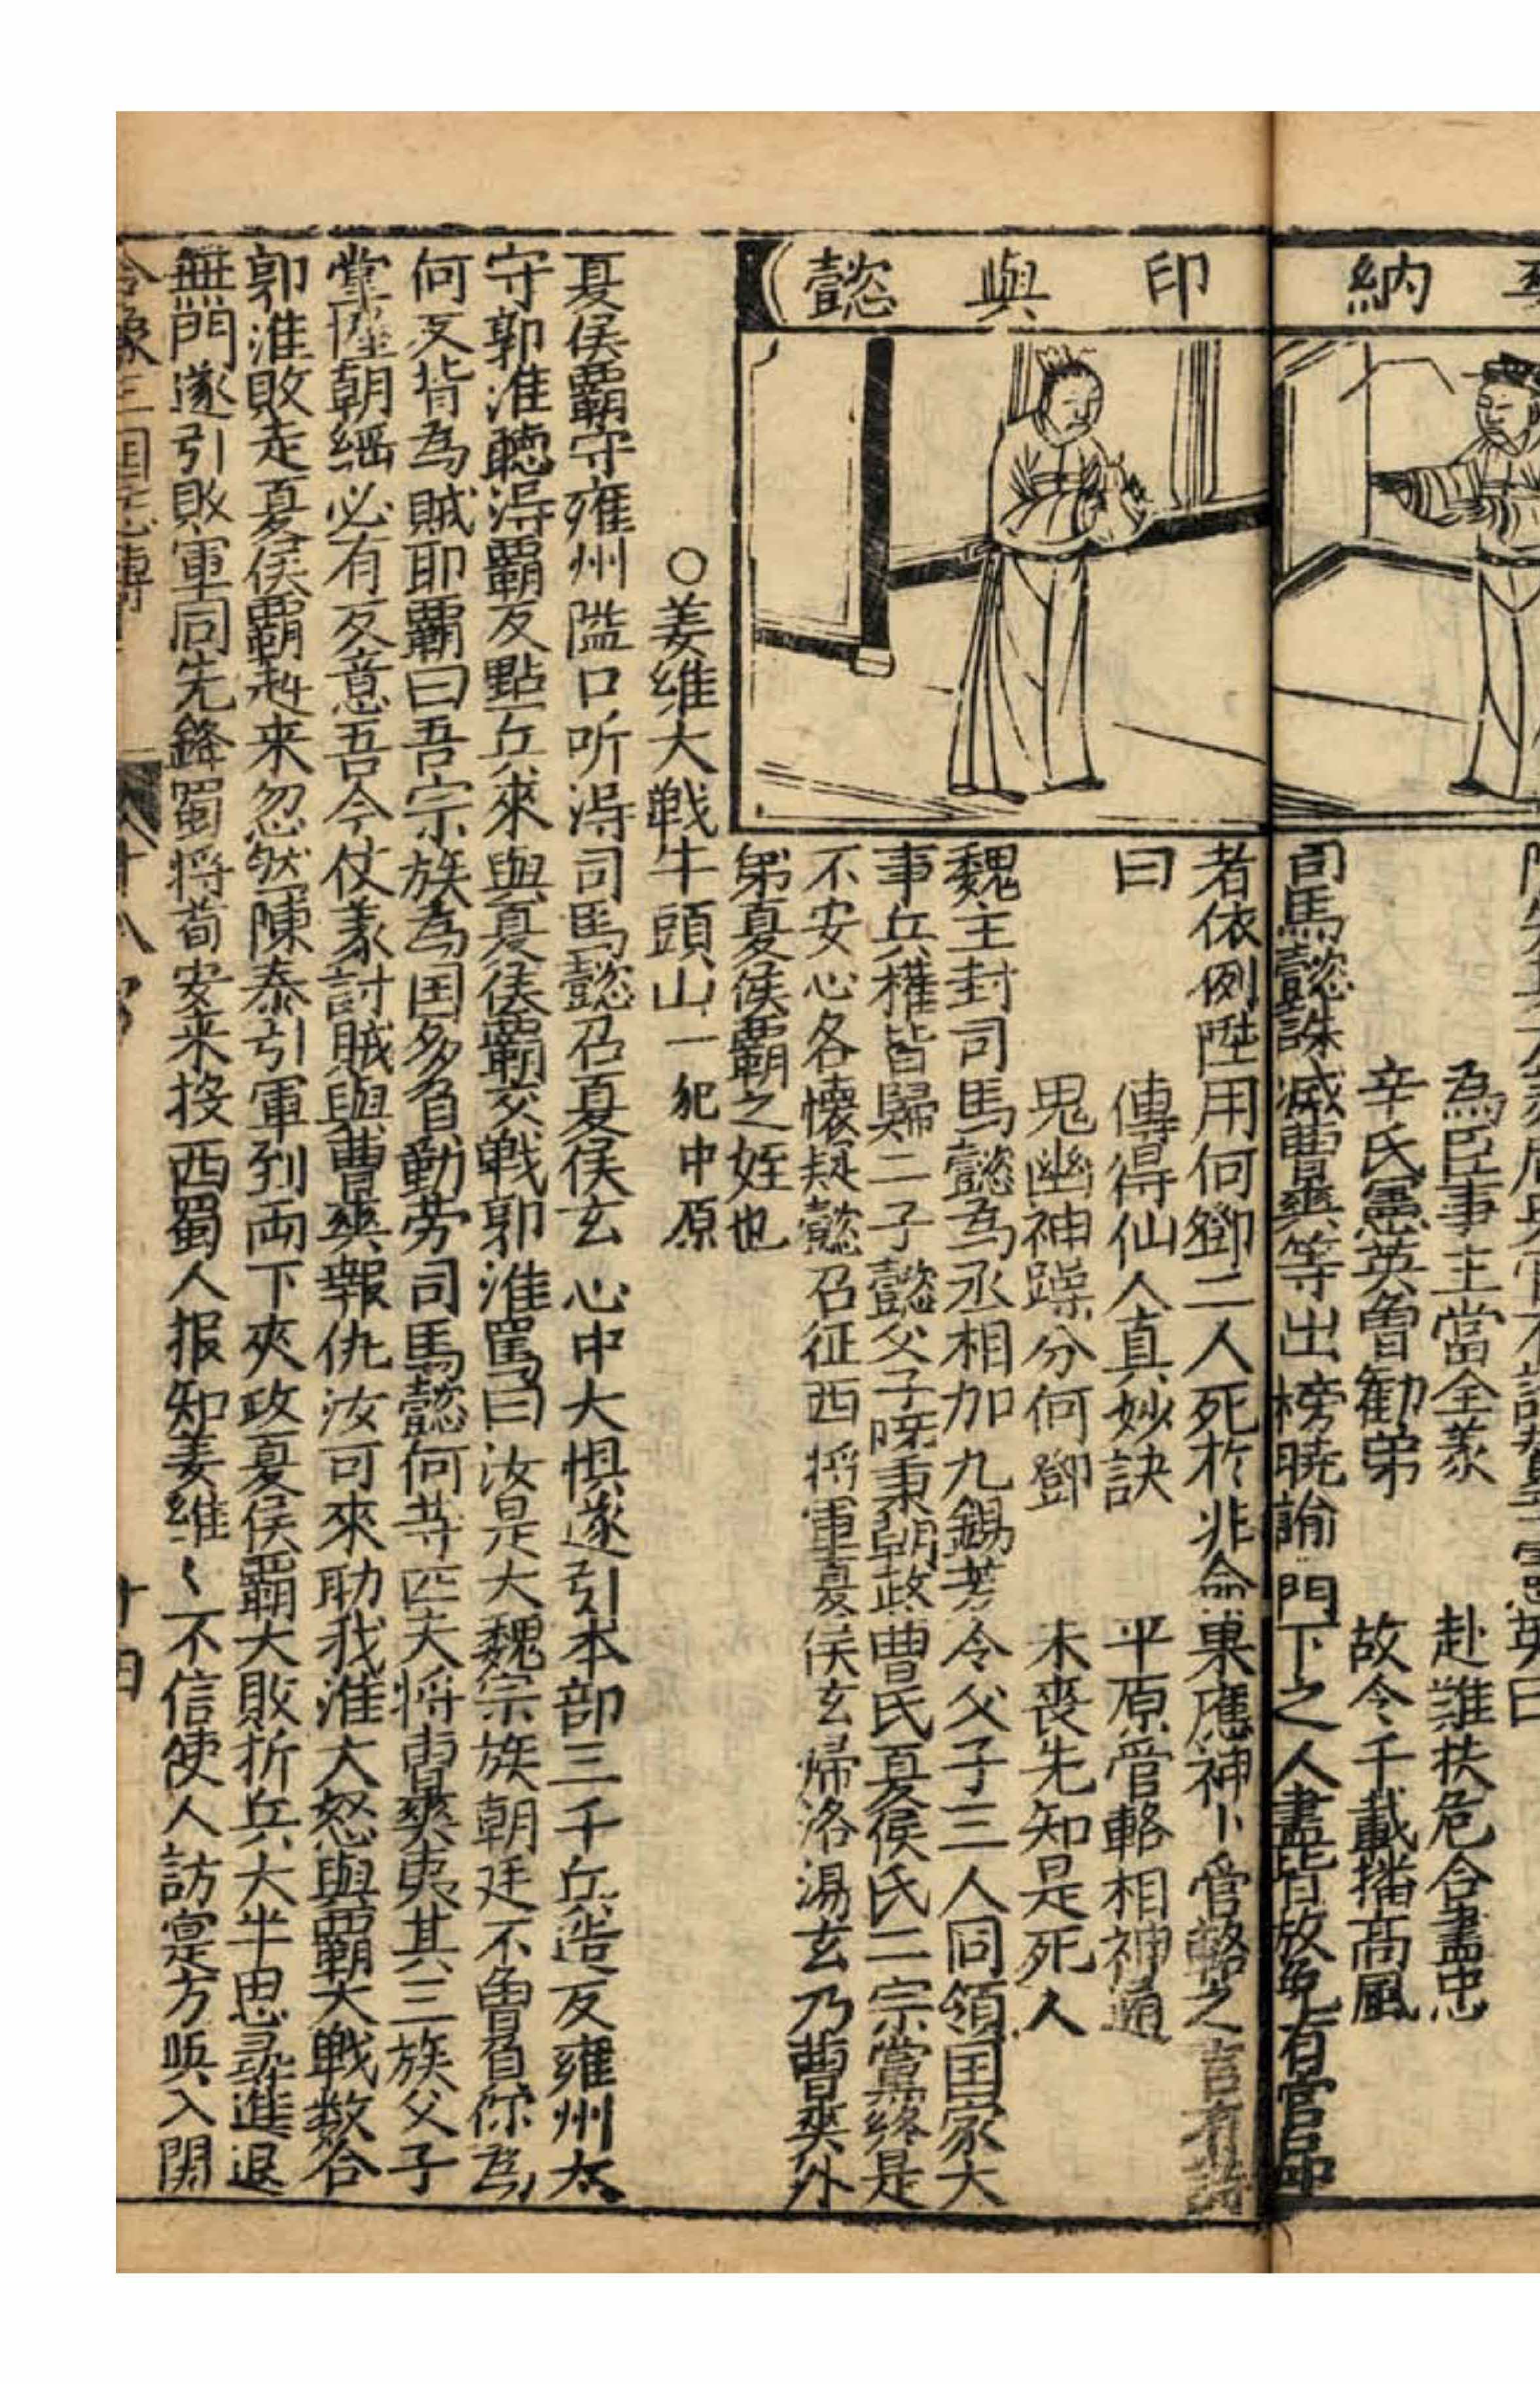 納
印與懿
為臣事主當全義 赴難扶危合盡忠
辛氏憲英曾勸弟 故令千載播高風
司馬懿誅滅曹爽等出榜曉諭門下之人盡皆放免有官即
者依例陞用何鄧二人死於非命果應神卜管輅之言有詩
曰 傳得仙人真妙訣 平原管輅相神通
鬼幽神躁分何鄧 未丧先知是死人
魏主封司馬懿為丞相加九錫芳令父子三人同領国家大
事兵權皆歸二子懿父子既秉朝政曹氏夏侯氏二宗党終是
不安心各懷疑懿召征西將軍夏侯玄歸洛湯玄乃曹爽外
弟夏侯霸之姪也
○姜維大戰牛頭山一犯中原
夏侯霸守雍州隘口听得司馬懿召夏侯玄心中大惧遂引本部三千兵造反雍州太
守郭淮聽得霸反點兵來與夏侯霸交戰郭淮罵曰汝是大魏宗族朝廷不曾負你為
何反背為賊耶霸曰吾宗族為国多負勤劳司馬懿何等匹夫將曹爽夷其三族父子
掌握朝綱必有反意吾今仗義討賊與曹爽報仇汝可來助我淮大怒與霸大戰数合
郭淮敗走夏侯霸赶来忽然陳泰引軍到両下夾攻夏侯霸大敗折兵大半思尋進退
無門遂引敗軍同先鋒蜀將荀安来投西蜀人报知姜維〻不信使人訪寔方喚入関
合像三国志傳 十八卷 十四